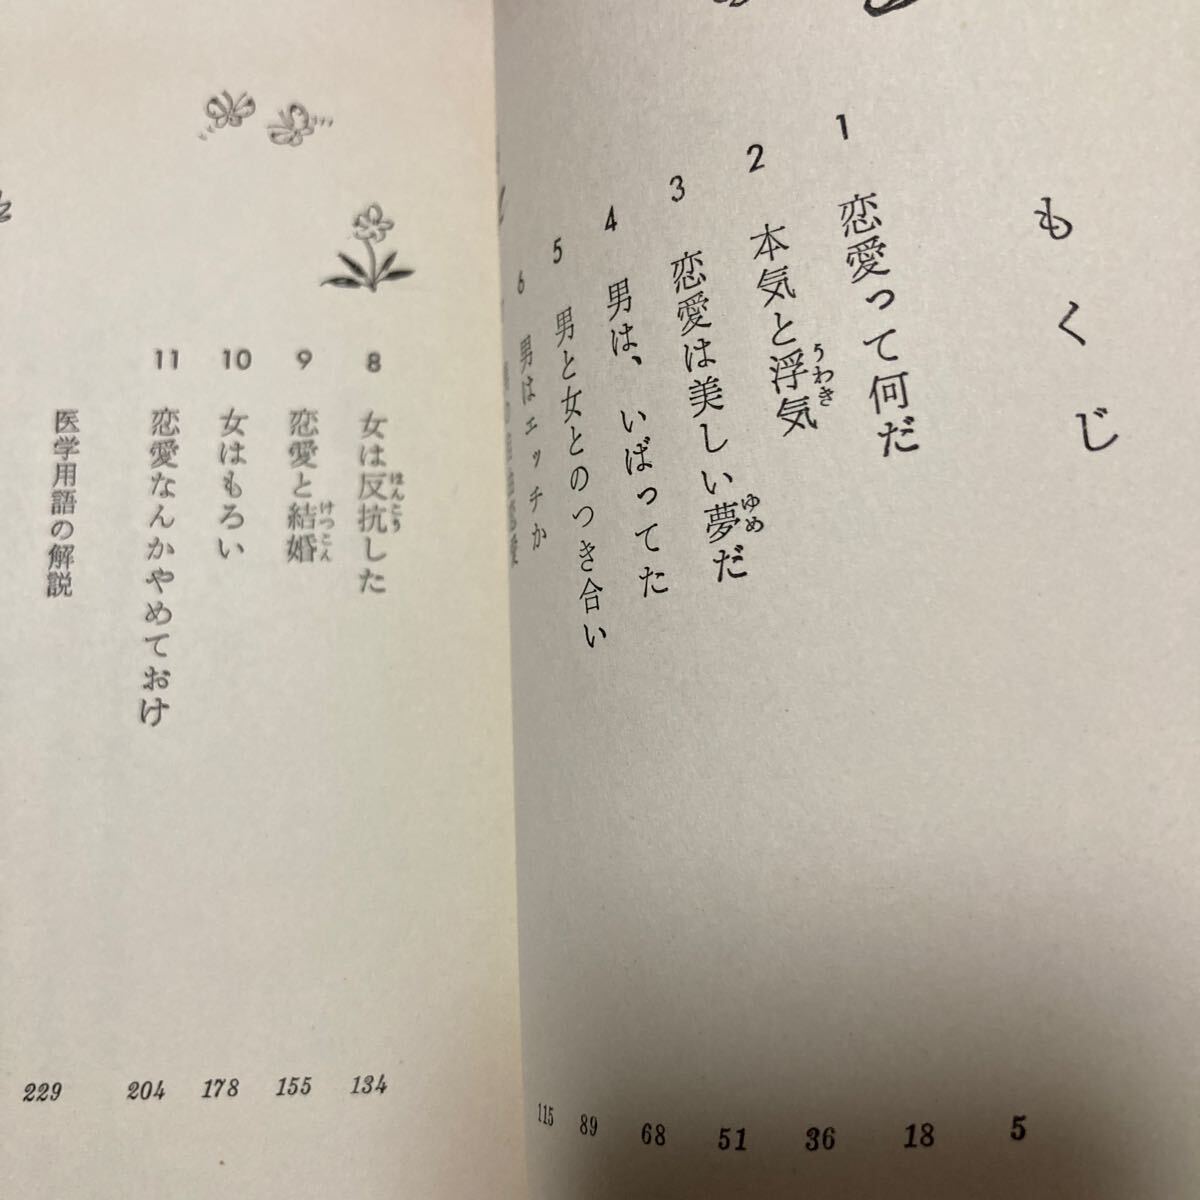 もくじ
1 恋愛って何だ 5
うわき
2 本気と浮気 18
ゆめ
3 恋愛は美しい夢だ 36
4 男は、いばってた 51
5 男と女とのつき合い 68
6 男はエッチか 89
115
はんこう
8 女は反抗した 134
けつこん
9 恋愛と結婚 155
10 女はもろい 178
11 恋愛なんかやめておけ 204
医学用語の解説 229